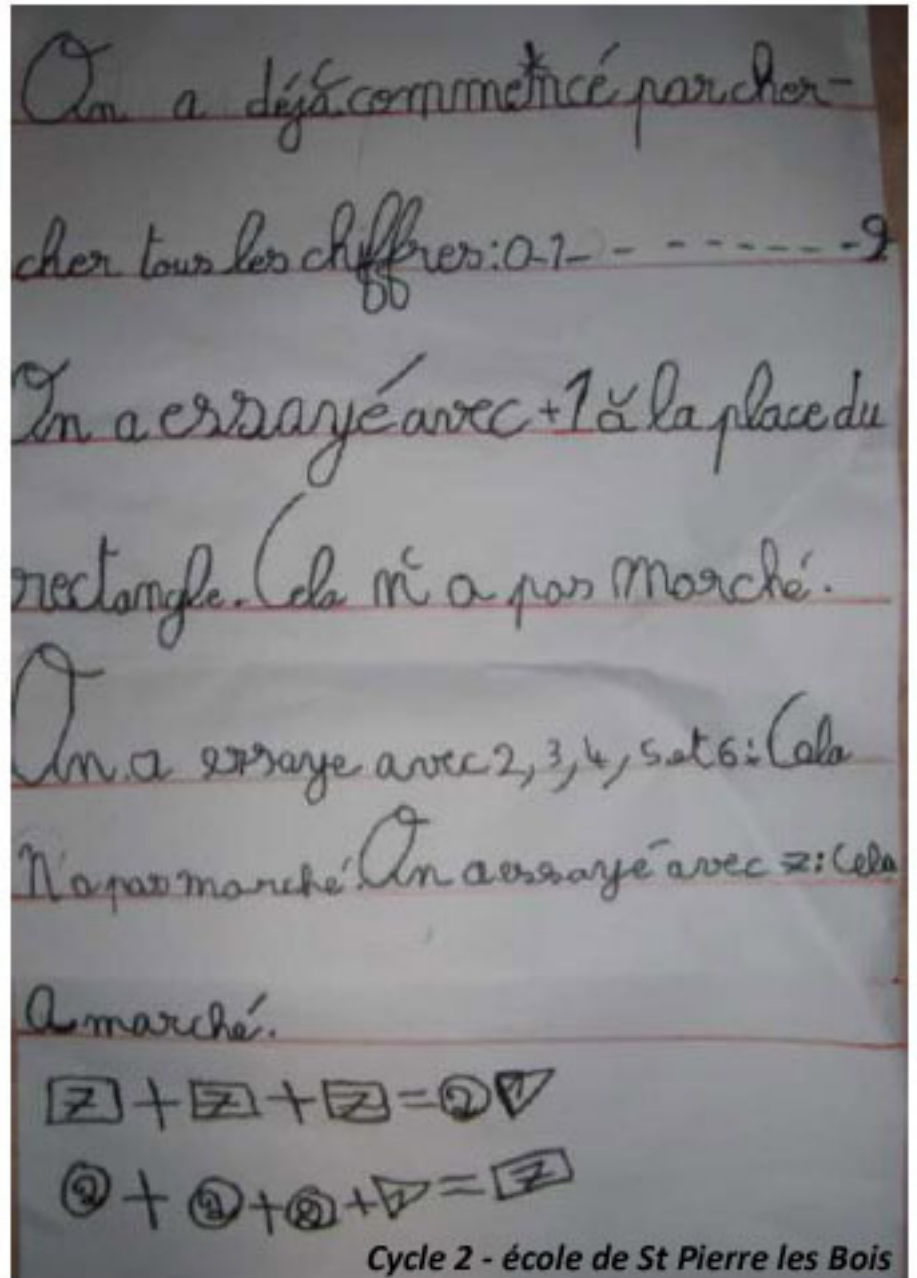 On a déjà commencé par cher-
cher tous les chiffres : 0-1- - - - - - - - - -9
On a essayé avec +1 à la place du
rectangle. Cela n'a pas marché.
On a essaye avec 2, 3, 4, 5 et 6 : Cela
N'a pas marché. On a essayé avec 7 : Cela
a marché.
7 + 7 + 7 = 2 1
2 + 2 + 2 + 1 = 7
Cycle 2 - école de St Pierre les Bois